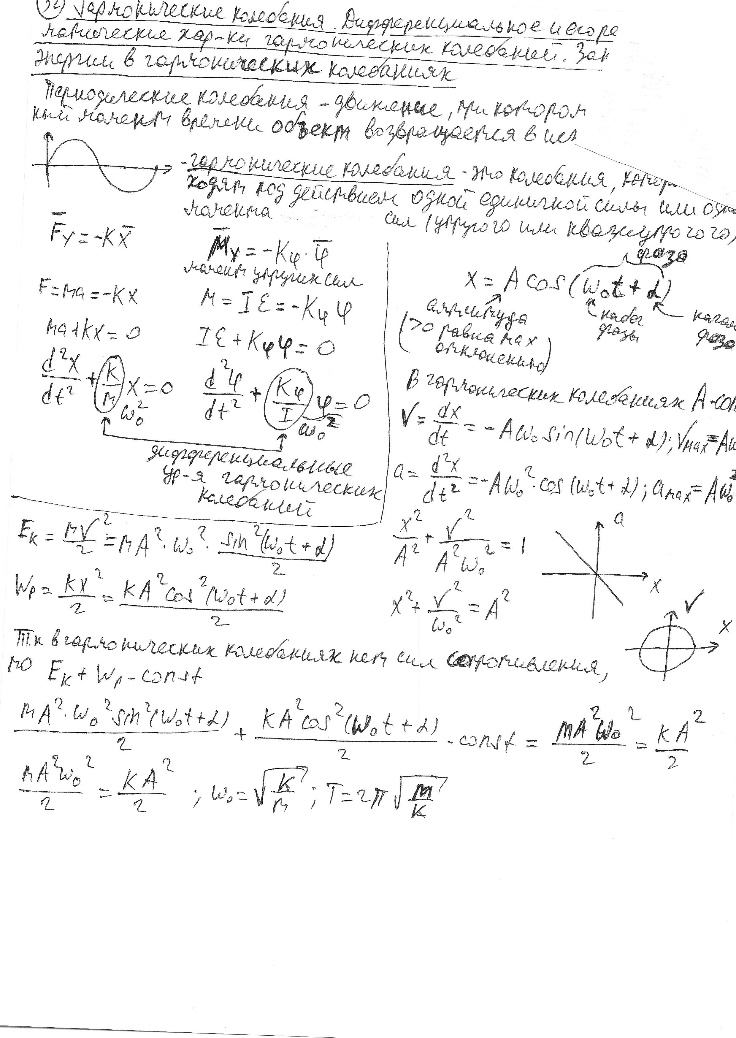 Гармонические колебания. Дифференциальное и
матические хар-ки гармонических колебаний. Зак
Энергии в гармонических колебаниях
Периодические колебания - движение, при котором
ный момент времени объект возвращается в исх
- гармонические колебания - это колебания, котор
ходят под действием одной единичной силы или одно
момента
сил (упругого или квазиупругого)
F̅у = -Kx̅
M̅у = -Kφ · φ̅
момент упругих сил
F = ma = -Kx
M = Iε = -Kφ φ
ma + Kx = 0
Iε + Kφ φ = 0
d²x/dt² + (K/m) x = 0
ω₀²
d²φ/dt² + (Kφ/I) φ = 0
ω₀²
дифференциальные
ур-я гармонических
колебаний
фаза
x = A cos(ω₀t + α)
амплитуда
(>0 равна max
отклонению)
набег
фазы
начал
фаза
В гармонических колебаниях A-con
V = dx/dt = -Aω₀ sin(ω₀t + α); Vmax = Aω
a = d²x/dt² = -Aω₀² · cos(ω₀t + α); amax = Aω₀²
x²/A² + V²/A²ω₀² = 1
x² + V²/ω₀² = A²
a
x
V
x
Eк = mV²/2 = mA² · ω₀² · sin²(ω₀t + α)/2
Wp = Kx²/2 = KA²cos²(ω₀t + α)/2
Тк в гармонических колебаниях нет сил сопротивления,
то Eк + Wp - const
mA² · ω₀² sin²(ω₀t + α)/2 + KA² cos²(ω₀t + α)/2 - const = mA²ω₀²/2 = KA²/2
mA²ω₀²/2 = KA²/2 ; ω₀ = √(K/m) ; T = 2π √(m/K)